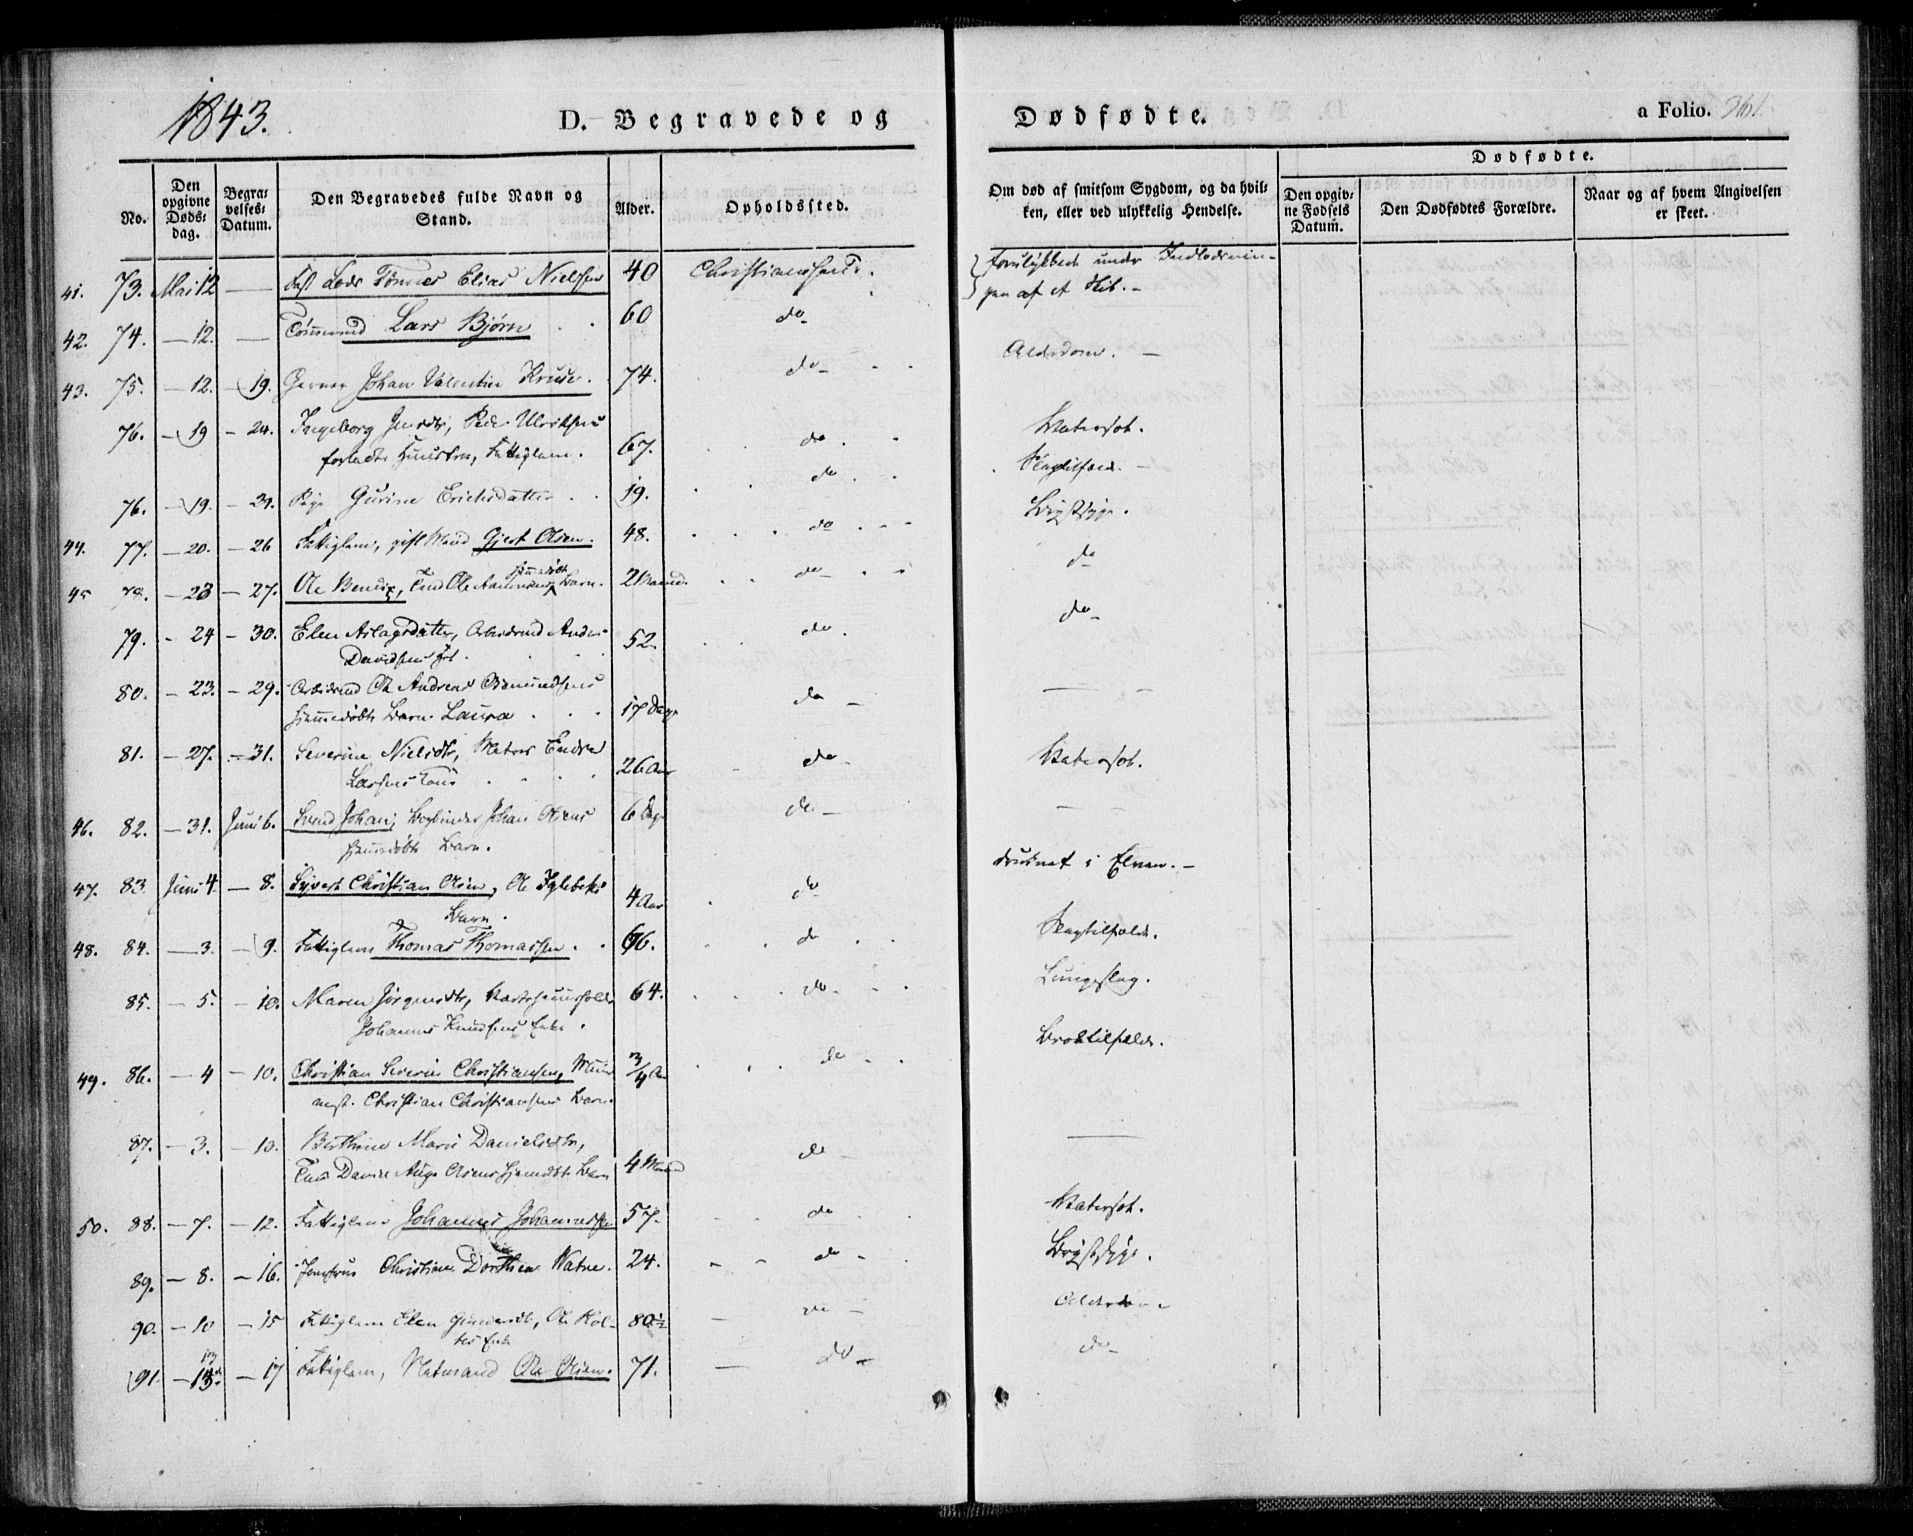 1843.
D. Begravede og Dødfødte. a Folio. 261.
No.
Den opgivne Døds-dag.
Begra-velses-Datum.
Den Begravedes fulde Navn og Stand.
Alder.
Opholdssted.
Om død af smitsom Sygdom, og da hvil-ken, eller ved ulykkelig Hendelse.
Dødfødte.
Den opgiv-ne Fødsels Datum.
Den Dødfødtes Forældre.
Naar og af hvem Angivelsen er skeet.
41. 73. Mai 12 — fast Lods Tønnes Elias Nielsen 40 Christianssand. forulykkede under Indlodsnin-
gen af et Skib. -
42. 74. — 12. — Tømmermd Lars Bjørn 60 do
43. 75. — 12. 19. Garver Johan Valentin Kruse. 74. do Alderdom. —
76. — 19 — 24. Ingeborg Jensdtr, Peder Ulriksens
forladte Hustru, Fattiglem. 67. do Vatersot.
76. — 19. — 24. Pige Gurine Erichsdatter 19. do Slagtilfæld.
44. 77. — 20. — 26 Fattiglem, gift Mand Gjert Olsen. 48. do Brystsyge.
45 78. — 23 — 27. Ole Bendix, Ole hjemdøbt Barn. 2 Maaned do do
79. - 24 — 30. Elen Aslagsdatter, Arbeidsmd
Davidsens 52. do do
80. — 23. — 29. Arbeidsmd Ole Andreas Osmundsens
hjemmedøbte Barn Laura 17 Dage do —
81. — 27. — 31. Severine Nielsdtr, Matros Endre
Larsens Kone 26 Aar do Vatersot.
46. 82. — 31. Juni 6. Svend Johan, Bogbinder Johan Olsens
hjemmedøbte Barn. 6 Dage do —
47. 83. Juni 4 — 8. Syvert Christian Olsen, Ole Iglebeks
Barn. 4 Aar do druknet i Elven. —
48. 84. — 3. — 9. Fattiglem Thomas Thomassen. 66. do Slagtilfælde.
85. — 5. — 10. Maren Jørgensdtr,
Johannes Knudsens Enke. 64. do Lungeslag.
49. 86. — 4 — 10. Christian Severin Christiansen, Muur
mst. Christian Christiansens Barn. 3/4 Aar do Broktilfælde.
87. — 3. — 10. Berthine Marie Danielsdtr,
Daniel Auge Olsens hjemdbt Barn 4 Maaned do —
50. 88. — 7. — 12. Fattiglem Johannes Johannessen 57. do Vatersot.
89. — 8. — 16. Jomfrue Christine Dorthea Watne. 24. do Brystsyge.
90. — 10 — 15 Fattiglem Elen Gundersdt, Ole Hol-
tes Enke 80½ do Alderdom
91. — 13 — 17 Fattiglem, Ole Olsen. 71. do do